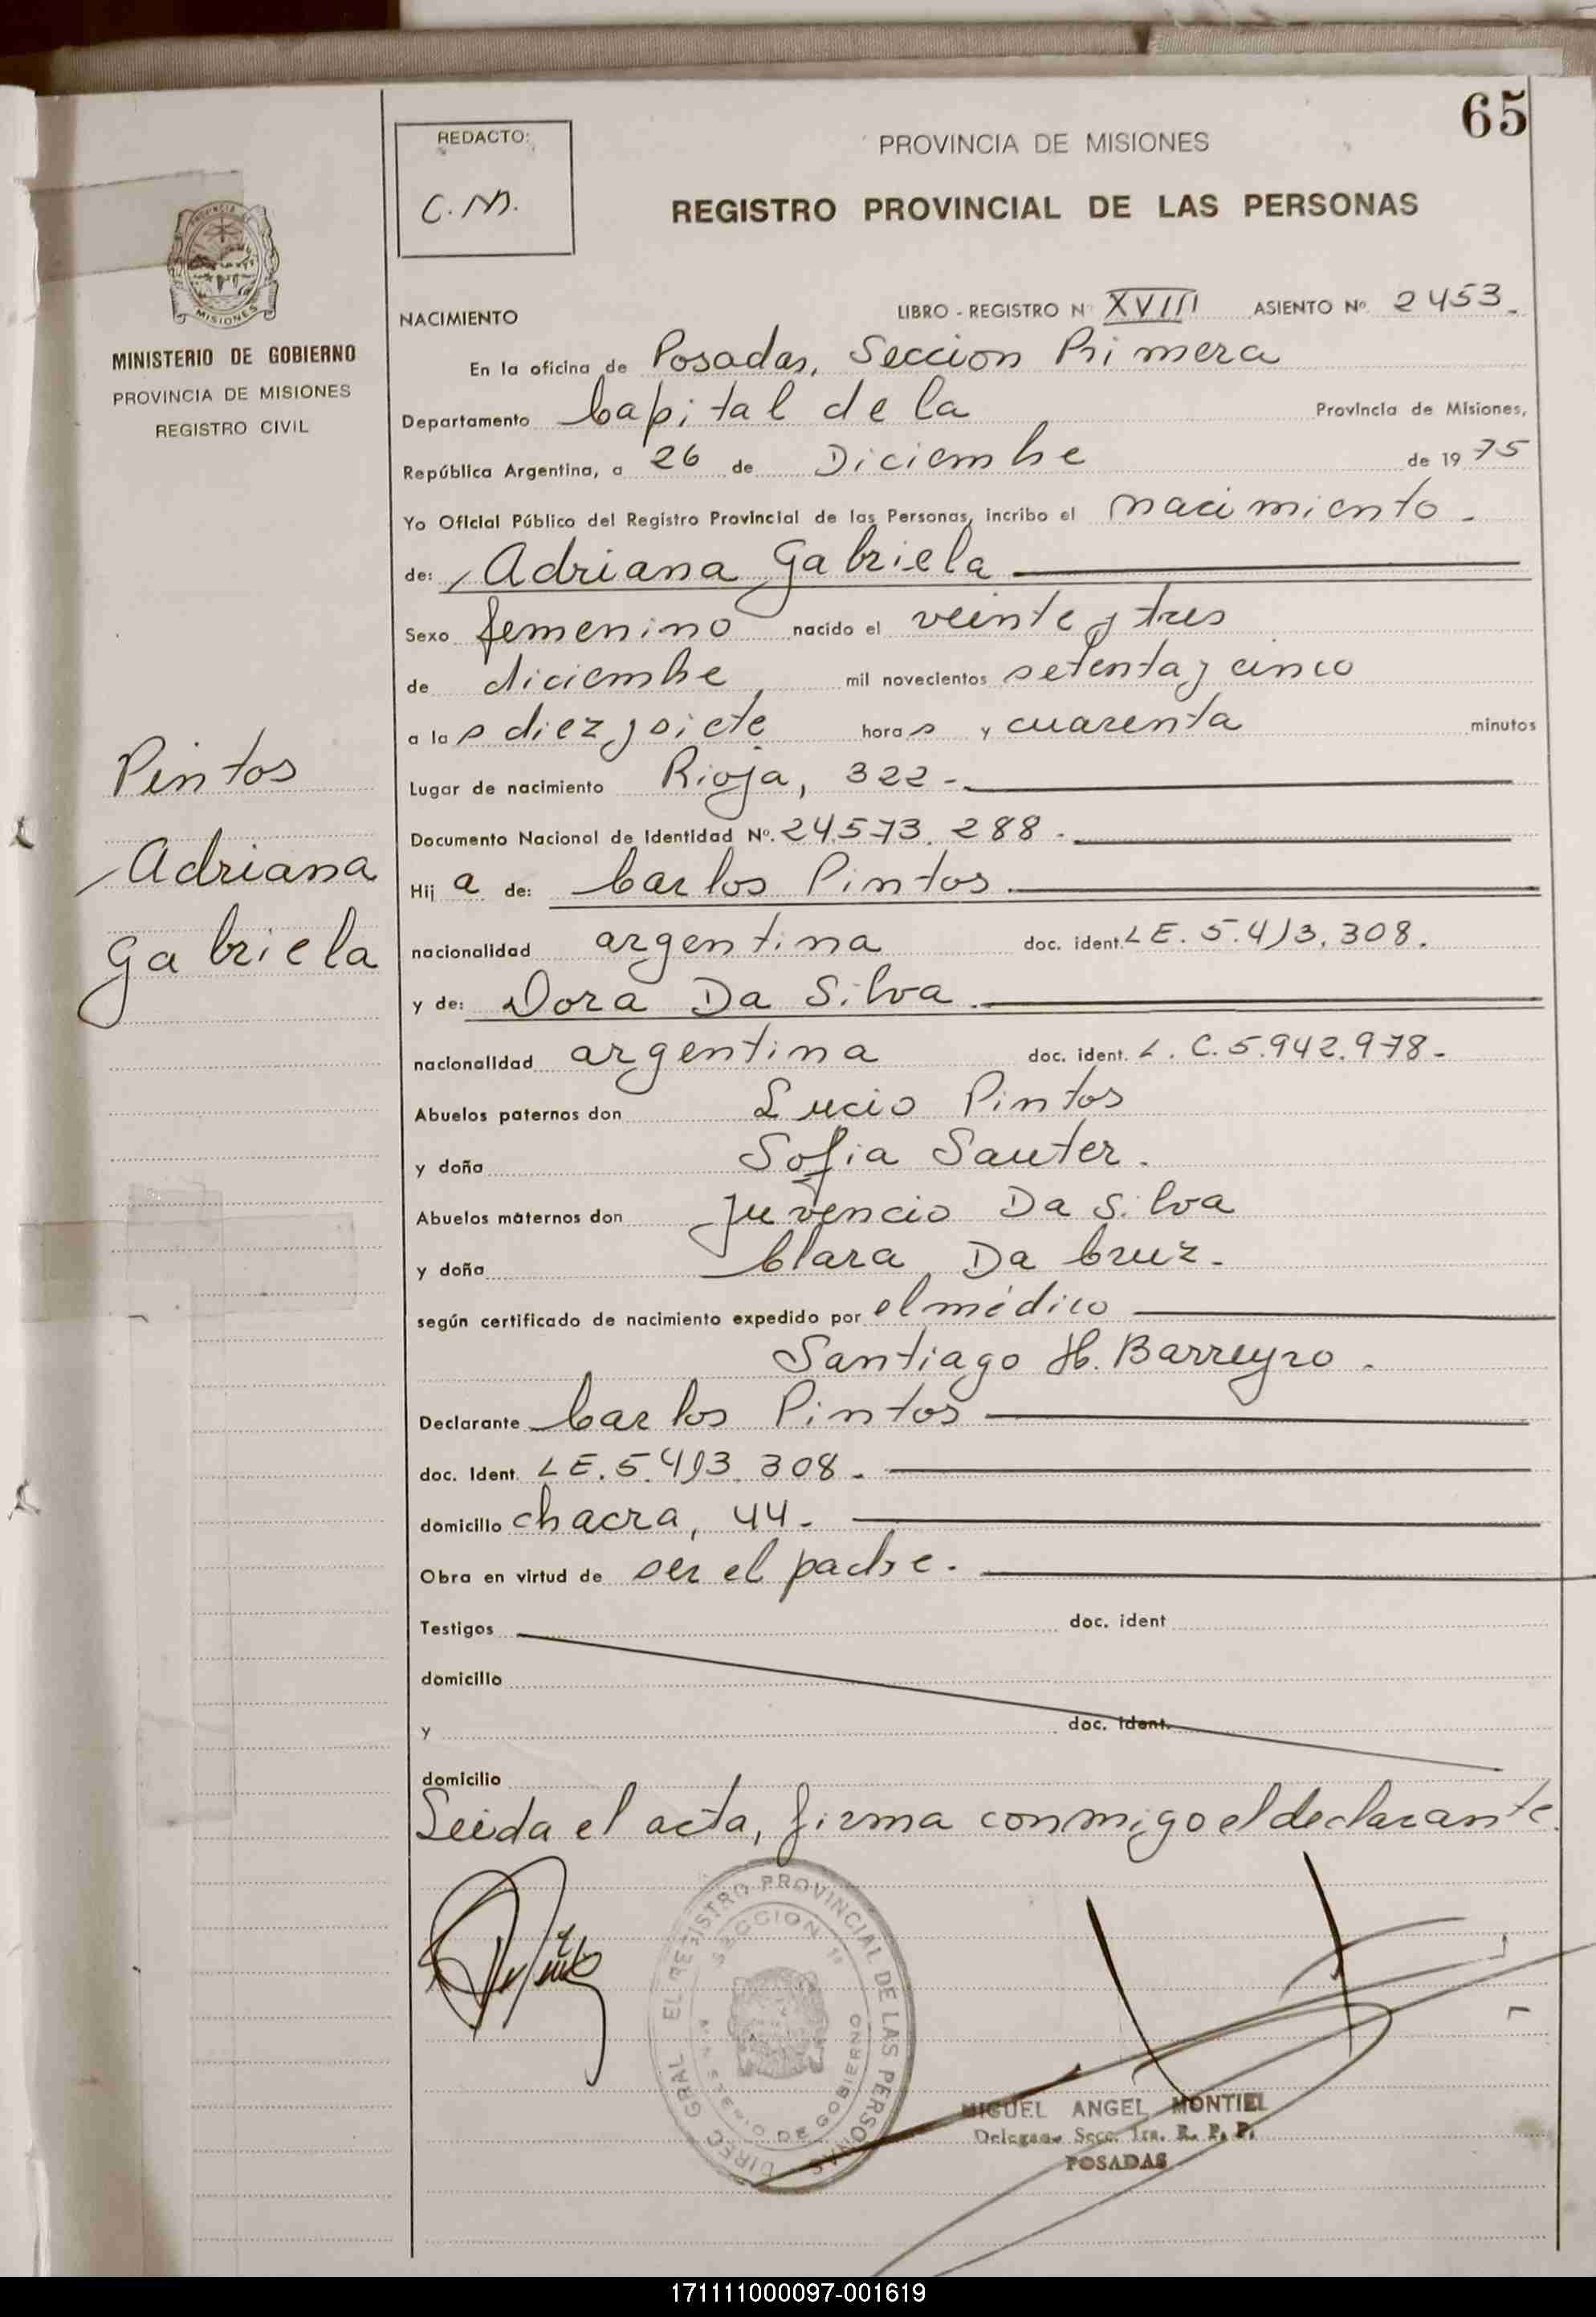 65
REDACTO:
C.M.
PROVINCIA DE MISIONES
REGISTRO PROVINCIAL DE LAS PERSONAS
MISIONES
MINISTERIO DE GOBIERNO
PROVINCIA DE MISIONES
REGISTRO CIVIL
NACIMIENTO
LIBRO - REGISTRO Nº XVIII ASIENTO Nº 2453.
En la oficina de Posadas, Seccion Primera
Departamento Capital de la Provincia de Misiones,
República Argentina, a 26 de Diciembre de 1975
Yo Oficial Público del Registro Provincial de las Personas, incribo el nacimiento.
de: Adriana Gabriela
Sexo femenino nacido el veinte y tres
de diciembre mil novecientos setenta y cinco
a las diez y siete horas y cuarenta minutos
Lugar de nacimiento Rioja, 322.-
Documento Nacional de Identidad Nº. 24.573.288.
Hija de: Carlos Pintos
nacionalidad argentina doc. ident. LE. 5.413.308.
y de: Dora Da Silva.
nacionalidad argentina doc. ident. L. C. 5.942.978.
Abuelos paternos don Lucio Pintos
y doña Sofia Sauter.
Abuelos maternos don Juvencio Da Silva
y doña Clara Da Cruz.
según certificado de nacimiento expedido por el médico
Santiago H. Barreyro.
Declarante Carlos Pintos
doc. Ident. LE. 5.413.308.
domicilio chacra, 44.
Obra en virtud de ser el padre.
Testigos doc. ident
domicilio
y doc. ident.
domicilio
Leida el acta, firma conmigo el declarante.
Pintos
Adriana
Gabriela
DIREC. GRAL. DEL REGISTRO PROVINCIAL DE LAS PERSONAS
SECCION 1ª
MINISTERIO DE GOBIERNO
MIGUEL ANGEL MONTIEL
Delegado Secc. 1ra. R. P. P.
POSADAS
171111000097-001619